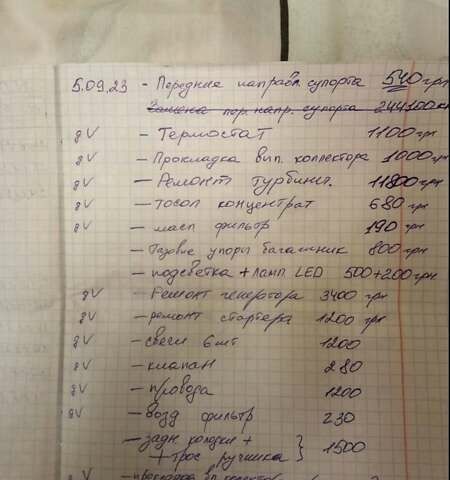 5.09.23 - Передние направл. супорта 540 грн
Замена пер. напр. супорта 244100км
gV - Термостат 1100 грн
gV - Прокладка вып. коллектора 1000 грн
gV - Ремонт турбины. 11800 грн
gV - тосол концентрат 680 грн
gV - масл фильтр 190 грн
- Газовые упоры багажник 800 грн
- подсветка + ламп LED 500+200 грн
gV - Ремонт генертора 3400 грн
gV - ремонт стартера 1200 грн
gV - свечи 6шт 1200
gV - клапан 280
gV - провода 1200
gV - возд фильтр 230
- задн колодки +
+ трос ручника } 1500
gV - прокладка вп